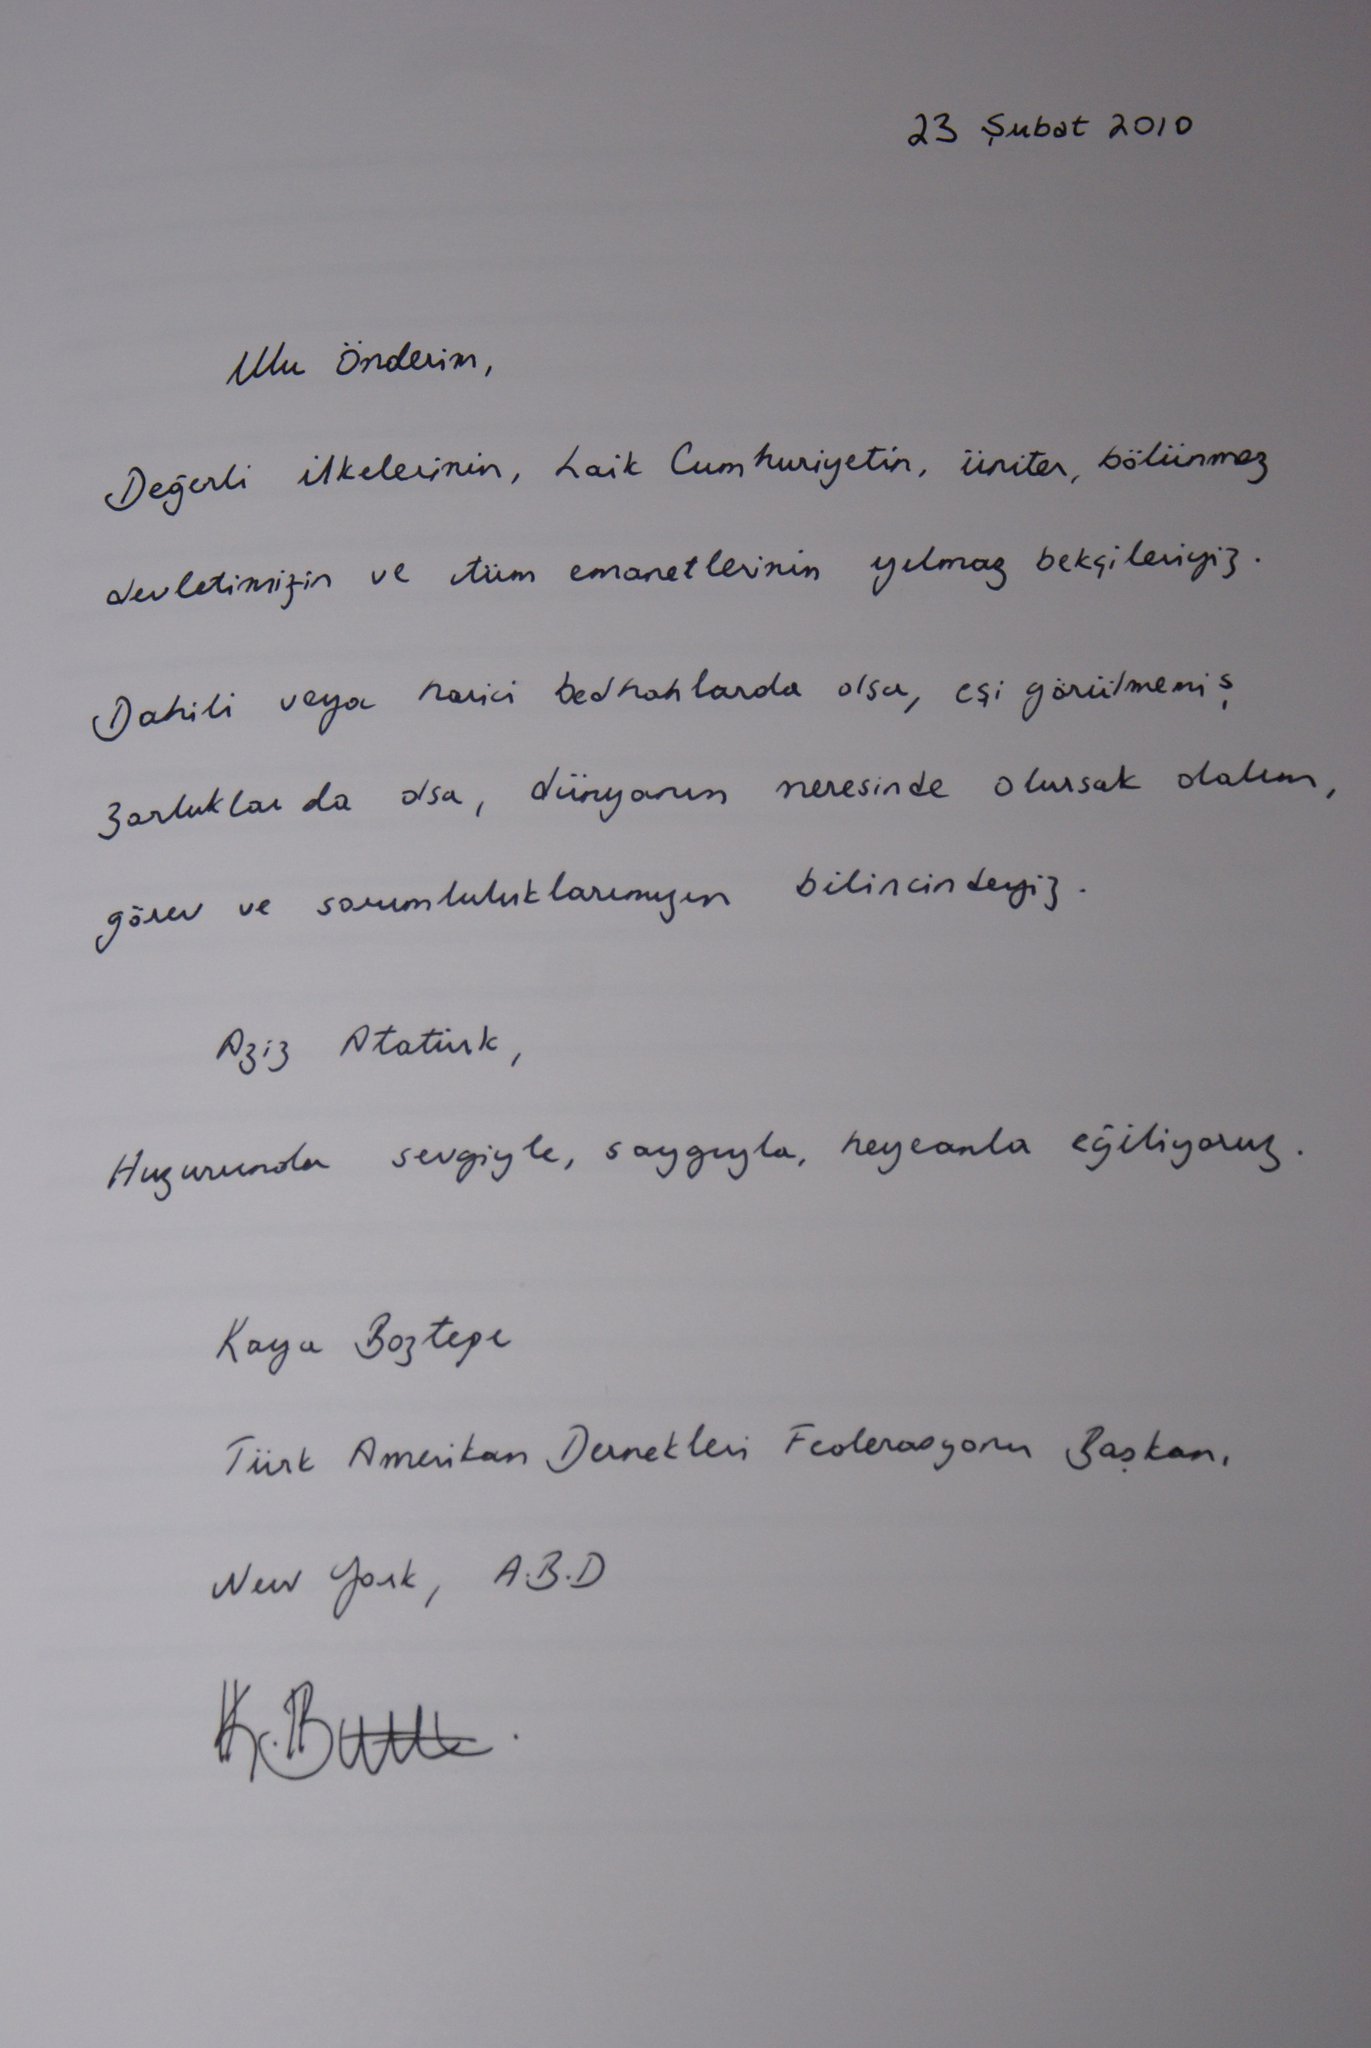 23 Şubat 2010
Ulu Önderim,
Değerli ilkelerinin, Laik Cumhuriyetin, üniter, bölünmez
devletimizin ve tüm emanetlerinin yılmaz bekçileriyiz.
Dahili veya harici bedhahlarda olsa, eşi görülmemiş
zorluklar da olsa, dünyanın neresinde olursak olalım,
görev ve sorumluluklarımızın bilincindeyiz.
Aziz Atatürk,
Huzurunda sevgiyle, saygıyla, heyecanla eğiliyoruz.
Kaya Boztepe
Türk Amerikan Dernekleri Federasyonu Başkanı
New York, A.B.D